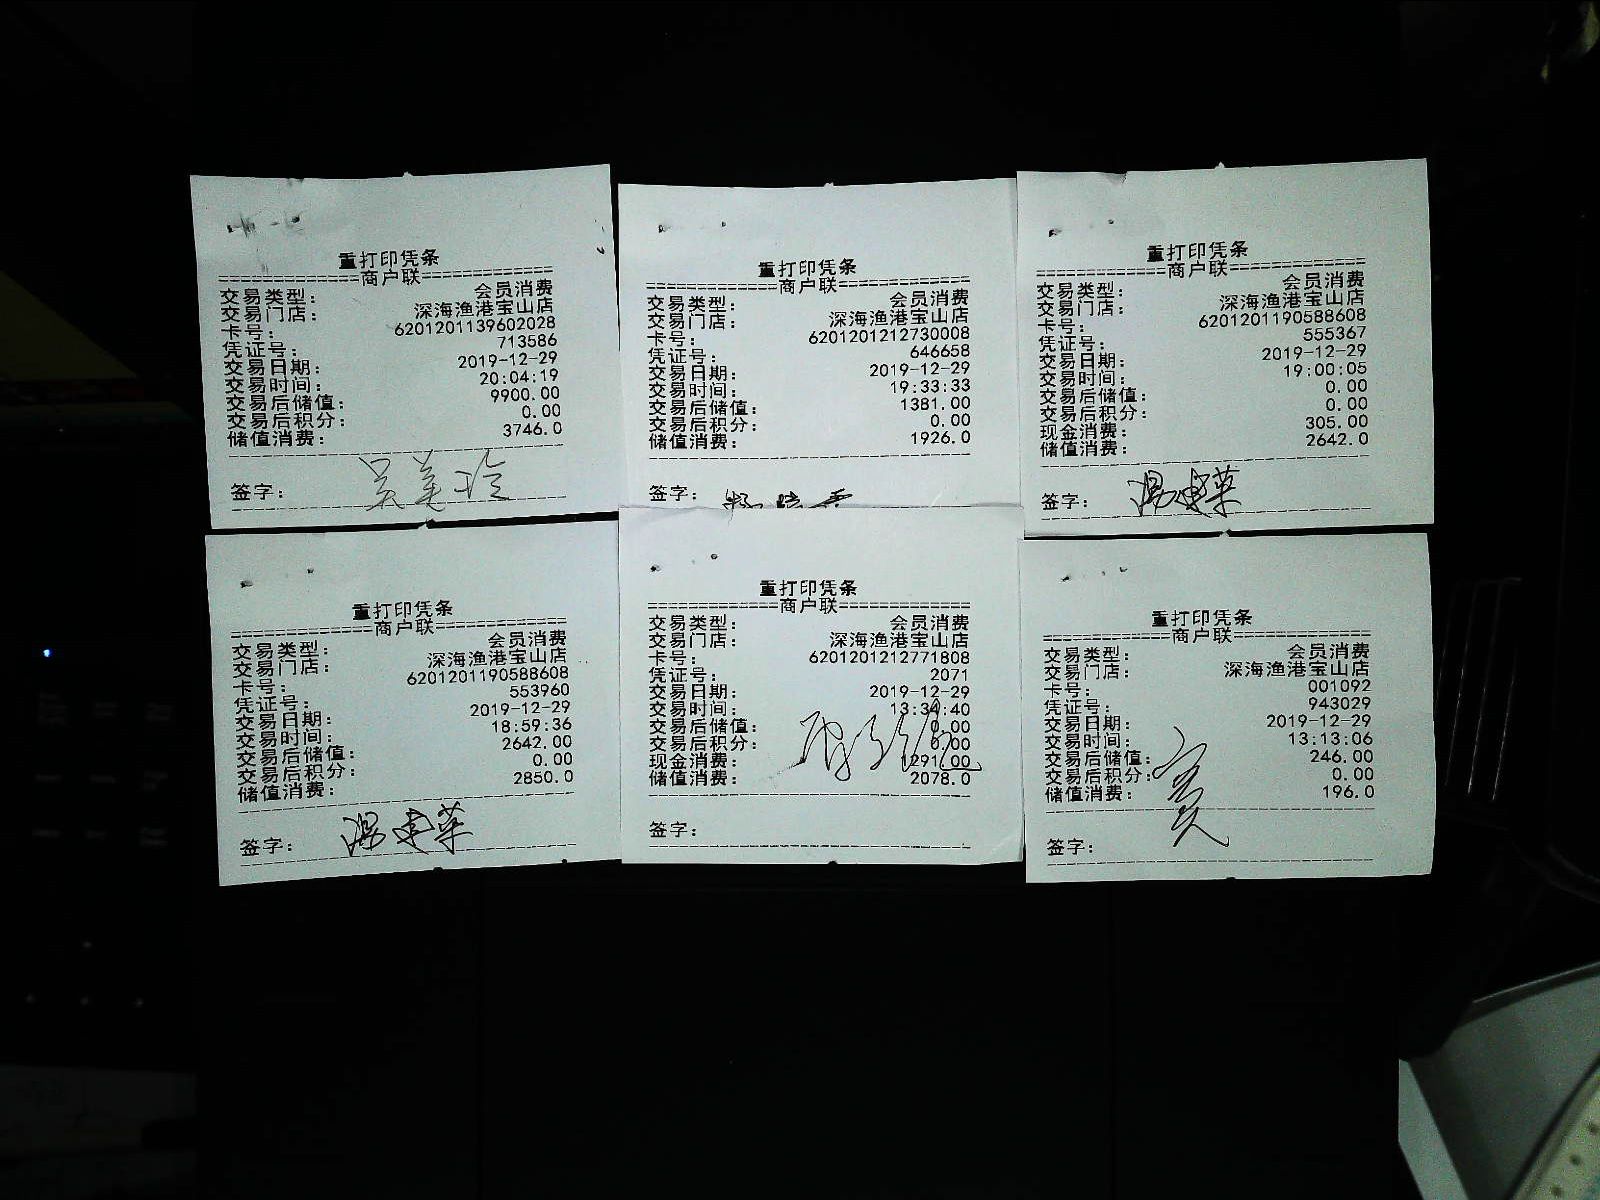 重打印凭条
==============商户联==============
交易类型： 会员消费
交易门店： 深海渔港宝山店
卡号： 6201201139602028
凭证号： 713586
交易日期： 2019-12-29
交易时间： 20:04:19
交易后储值： 9900.00
交易后积分： 0.00
储值消费： 3746.0
签字： 吴美玲
重打印凭条
==============商户联==============
交易类型： 会员消费
交易门店： 深海渔港宝山店
卡号： 6201201212730008
凭证号： 646658
交易日期： 2019-12-29
交易时间： 19:33:33
交易后储值： 1381.00
交易后积分： 0.00
储值消费： 1926.0
签字：
重打印凭条
==============商户联==============
交易类型： 会员消费
交易门店： 深海渔港宝山店
卡号： 6201201190588608
凭证号： 555367
交易日期： 2019-12-29
交易时间： 19:00:05
交易后储值： 0.00
交易后积分： 0.00
现金消费： 305.00
储值消费： 2642.0
签字：
重打印凭条
==============商户联==============
交易类型： 会员消费
交易门店： 深海渔港宝山店
卡号： 6201201190588608
凭证号： 553960
交易日期： 2019-12-29
交易时间： 18:59:36
交易后储值： 2642.00
交易后积分： 0.00
储值消费： 2850.0
签字：
重打印凭条
==============商户联==============
交易类型： 会员消费
交易门店： 深海渔港宝山店
卡号： 6201201212771808
凭证号： 2071
交易日期： 2019-12-29
交易时间： 13:34:40
交易后储值： 0.00
交易后积分： 0.00
现金消费： 291.00
储值消费： 2078.0
签字：
重打印凭条
==============商户联==============
交易类型： 会员消费
交易门店： 深海渔港宝山店
卡号： 001092
凭证号： 943029
交易日期： 2019-12-29
交易时间： 13:13:06
交易后储值： 246.00
交易后积分： 0.00
储值消费： 196.0
签字：